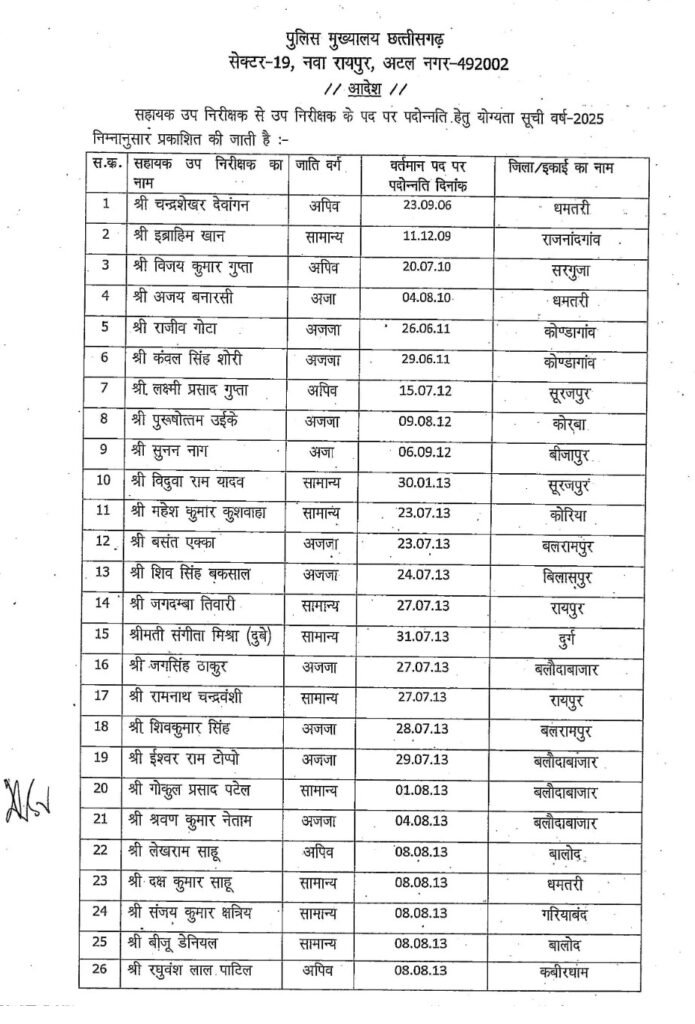 पुलिस मुख्यालय छत्तीसगढ़
सेक्टर-19, नवा रायपुर, अटल नगर-492002
// आदेश //
सहायक उप निरीक्षक से उप निरीक्षक के पद पर पदोन्नति हेतु योग्यता सूची वर्ष-2025
निम्नानुसार प्रकाशित की जाती है :-
स.क्र. सहायक उप निरीक्षक का नाम जाति वर्ग वर्तमान पद पर पदोन्नति दिनांक जिला/इकाई का नाम
1 श्री चन्द्रशेखर देवांगन अपिव 23.09.06 धमतरी
2 श्री इब्राहिम खान सामान्य 11.12.09 राजनांदगांव
3 श्री विजय कुमार गुप्ता अपिव 20.07.10 सरगुजा
4 श्री अजय बनारसी अजा 04.08.10 धमतरी
5 श्री राजीव गोटा अजजा 26.06.11 कोण्डागांव
6 श्री कंवल सिंह शोरी अजजा 29.06.11 कोण्डागांव
7 श्री लक्ष्मी प्रसाद गुप्ता अपिव 15.07.12 सूरजपुर
8 श्री पुरूषोत्तम उईके अजजा 09.08.12 कोरबा
9 श्री सुनन नाग अजा 06.09.12 बीजापुर
10 श्री विदुवा राम यादव सामान्य 30.01.13 सूरजपुर
11 श्री महेश कुमार कुशवाहा सामान्य 23.07.13 कोरिया
12 श्री बसंत एक्का अजजा 23.07.13 बलरामपुर
13 श्री शिव सिंह बकसाल अजजा 24.07.13 बिलासपुर
14 श्री जगदम्बा तिवारी सामान्य 27.07.13 रायपुर
15 श्रीमती संगीता मिश्रा (दुबे) सामान्य 31.07.13 दुर्ग
16 श्री जगसिंह ठाकुर अजजा 27.07.13 बलौदाबाजार
17 श्री रामनाथ चन्द्रवंशी सामान्य 27.07.13 रायपुर
18 श्री शिवकुमार सिंह अजजा 28.07.13 बलरामपुर
19 श्री ईश्वर राम टोप्पो अजजा 29.07.13 बलौदाबाजार
20 श्री गोकुल प्रसाद पटेल सामान्य 01.08.13 बलौदाबाजार
21 श्री श्रवण कुमार नेताम अजजा 04.08.13 बलौदाबाजार
22 श्री लेखराम साहू अपिव 08.08.13 बालोद
23 श्री दक्ष कुमार साहू सामान्य 08.08.13 धमतरी
24 श्री संजय कुमार क्षत्रिय सामान्य 08.08.13 गरियाबंद
25 श्री बीजू डेनियल सामान्य 08.08.13 बालोद
26 श्री रघुवंश लाल पाटिल अपिव 08.08.13 कबीरधाम